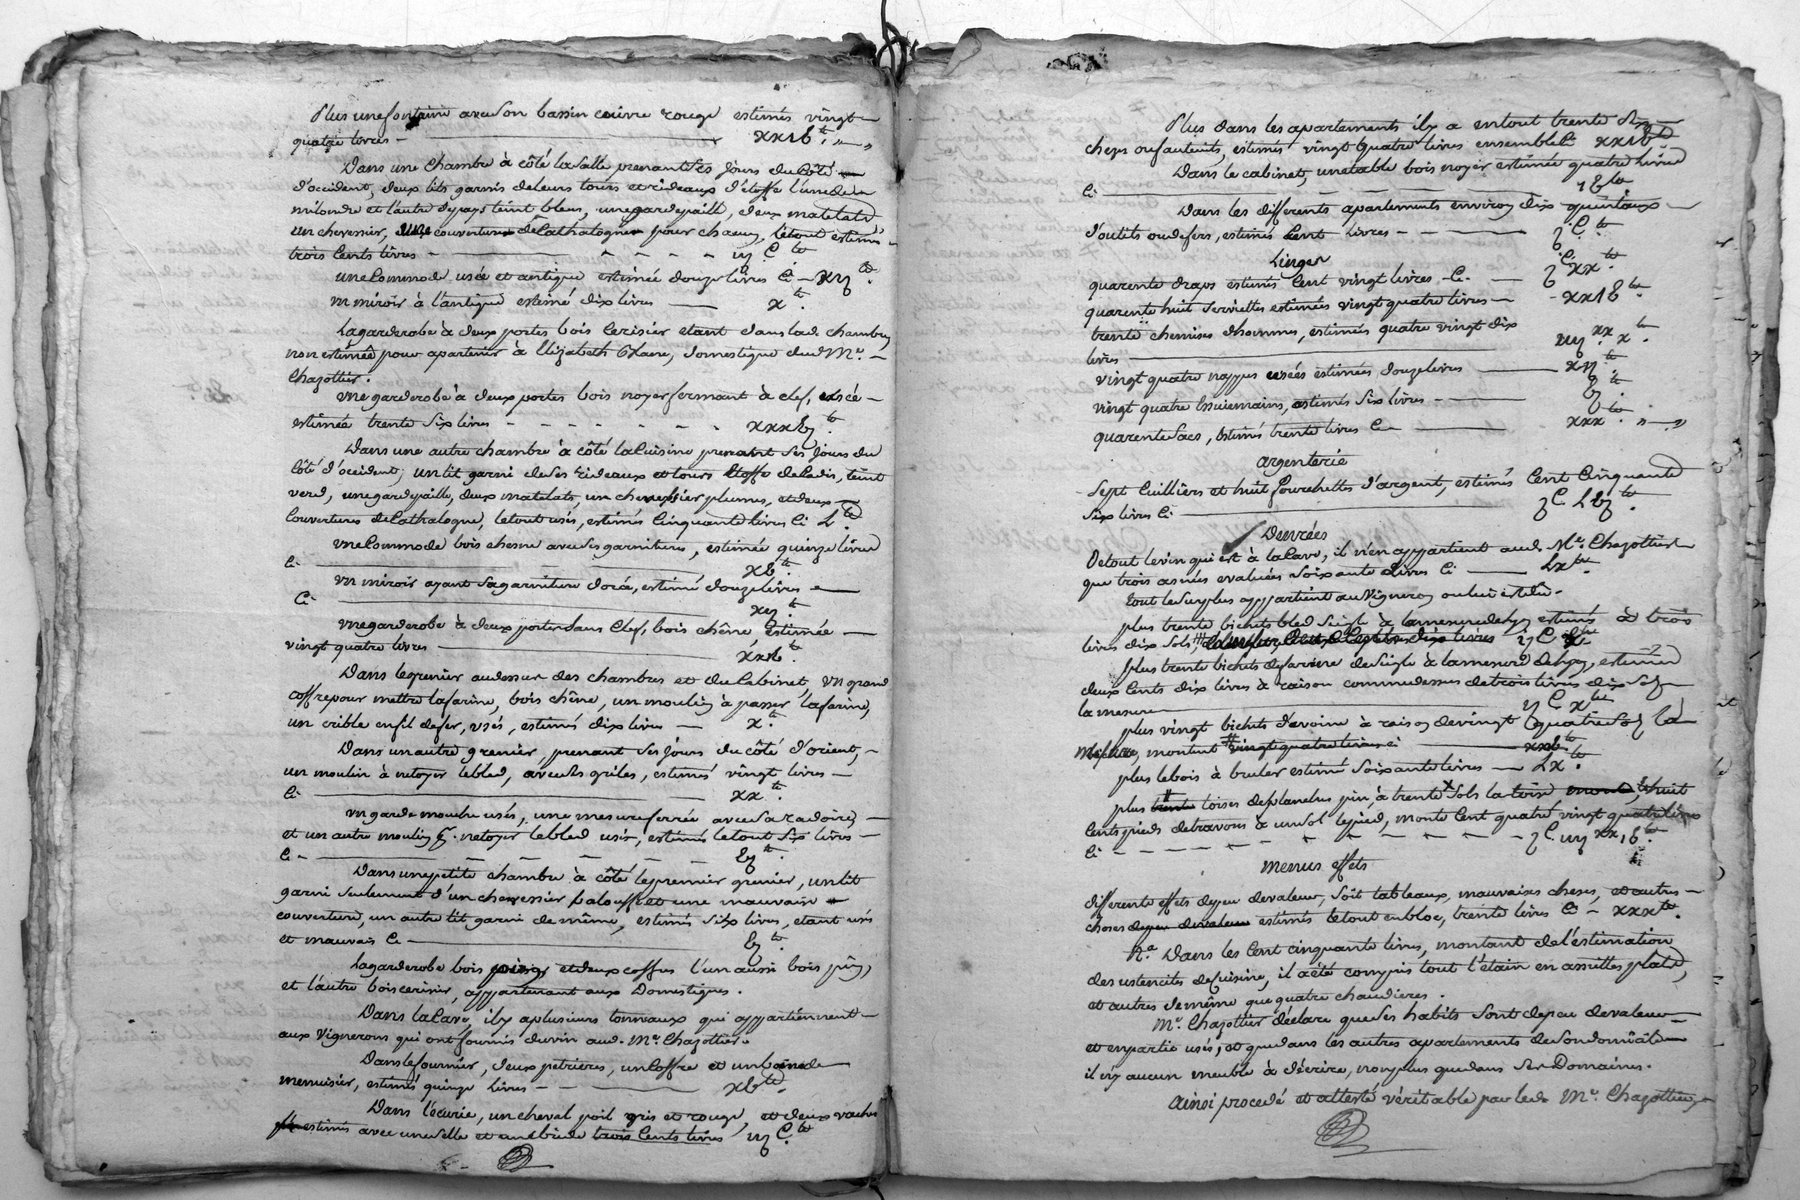 Plus une fontaine avec son bassin cuivre rouge estimés vingt
quatre livres - xxiv lt. " — "
Dans une chambre à côté la salle prenant ses jours du côté
d'occident, deux lits garnis de leurs tours et rideaux d'étoffe l'une de
et l'autre de pays teint bleu, une gardepaille, deux matelats
un chevessier, une couverture de Cathalogne pour chacun, letout estimés
trois cents livres - - - - - iij C. lt
une Commode usée et antique estimée douze livres Ci - xij lt
un miroir à l'antique estimé dix livres — x lt.
La garderobe à deux portes bois cerisier etant dans lad. chambre,
non estimée pour apartenir à Elizabeth, domestique dud. Mr. -
Chazottier.
une garderobe à deux portes bois noyer fermant à clef, usée -
estimée trente six livres - - - - - - - xxxvj lt.
Dans une autre chambre à côté la Cuisine prenant ses jours du
côté d'occident, un lit garni de ses rideaux et tours étoffe de Cadis, teint
verd, une gardepaille, deux matelats, un chevessier plumes, et deux
Couvertures de Cathalogne, letout usés, estimés Cinquante livres Ci L. lt
une Commode bois chesne avec ses garnitures, estimée quinze livres
Ci - xv lt.
un miroir ayant sa garniture dorée, estimé douze livres -
Ci - xij lt.
une garderobe à deux portes sans Clef, bois chêne estimée -
vingt quatre livres - xxiv lt.
Dans le grenier au dessus des chambres et du Cabinet, un grand
coffre pour mettre la farine, bois chêne, un moulin à passer la farine,
un crible en fil de fer, usés, estimés dix livres — x lt.
Dans un autre grenier, prenant ses jours du côté d'orient, -
un moulin à netoyer le bled, avec ses grilles, estimés vingt livres -
Ci - xx lt.
un garde mouche usés, une mesure ferrée avec sa radoire, -
et un autre moulin pr. netoyer le bled usés, estimés letout six livres -
Ci - - - - - - vj lt.
Dans une petite chambre à côté le premier grenier, un lit
garni seulement d'un chevessier paloussé et une mauvaise
couverture, un autre lit garni de même, estimés six livres, etant usés
et mauvais Ci - vj lt.
La garderobe bois et deux coffres l'un aussi bois pin,
et l'autre bois cerisier, appartenant aux Domestiques.
Dans la Cave, il y a plusieurs tonneaux qui appartiennent -
aux vignerons qui ont fournis du vin aud. Mr Chazottier.
Dans le fournier, deux petrieres, un Coffre et un banc de
menuisier, estimés quinze livres - - — xv lt.
Dans l'écurie, un cheval poil gris et rouge, et deux vaches
estimés avec une selle et une bride trois Cents livres iij C. lt
Plus dans les apartements il y a en tout trente six
cheses ou fauteuils, estimés vingt quatre livres ensemble Ci xxiv lt
Dans le cabinet, une table bois noyer estimée quatre livres
Ci - iv lt
Dans les differents apartements environ dix quintaux -
d'outils ou de fers, estimés Cent livres - - - j C. lt
Linges
quarente draps estimés Cent vingt livres - Ci - j C xx lt.
quarente huit serviettes estimées vingt quatre livres - - xxiv lt.
trente chemises d'hommes, estimées quatre vingt dix
livres - iiij xx x lt.
vingt quatre nappes usées estimées douze livres — xij lt
vingt quatre Essuiemains, estimés six livres - - — vj lt.
quarente sacs, Estimés trente livres Ci - xxx lt. " — "
argenterie
Sept Cuilliers et huit fourchettes d'argent, estimés Cent Cinquante
six livres Ci - j C. Lvj lt.
Denrées
De tout le vin qui est à la Cave, il n'en appartient aud. Mr. Chazottier
que trois asnées evaluées soixante livres Ci — Lx lt.
tout le surplus appartient au Vigneron ou lui est dû.
plus trente bichets bled seigle à la mesure de Lyon estimés à trois
livres dix sols, j C v lt
plus trente bichets de farine de seigle à la mesure de Lyon, estimée
deux Cents dix livres à raison comme dessus de trois livres dix sols -
la mesure - ij C x lt.
plus vingt bichets d'avoine à raison de vingt quatre sols la
mesure, montent vingt quatre livres Ci — xxiv lt
plus le bois à bruler estimé soixante livres — Lx lt.
plus toises de planches pin, à trente sols la toise, & huit
Cents pieds de travons à un sol le pied, monte Cent quatre vingt quatre livres
Ci - - - - - - - j C iiij xx iv lt.
Menus effets
differents effets de peu de valeur, soit tableaux, mauvaises cheses, et autres -
choses de peu de valeur estimés letout en bloc, trente livres Ci - xxx lt.
Na. Dans les Cent cinquante livres, montant de l'estimation
des ustenciles de Cuisine, il a été compris tout l'étain en assiettes plats,
et autres de même que quatre chaudieres.
Mr. Chazottier déclare que ses habits sont de peu de valeur -
et en partie usés, et que dans les autres apartements de son domicile
il n'y a aucun meuble à décrire, non plus que dans ses Domaines.
Ainsi procedé et attesté véritable par led. Mr. Chazottier